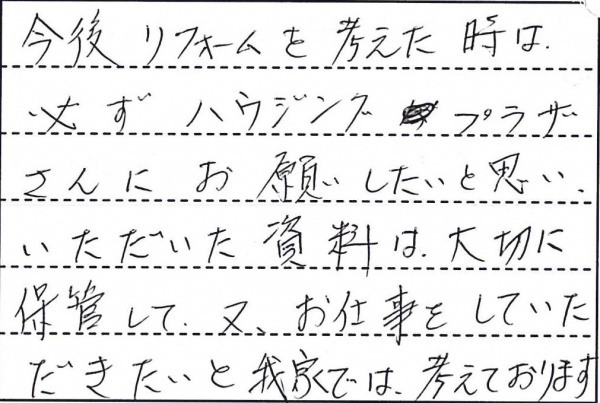 今後 リフォームを 考えた 時は、
必ず ハウジング プラザ
さんに お 願いしたいと思い、
いただいた 資料は、大切に
保管して、又、お仕事をしていた
だきたいと我家では、考えております